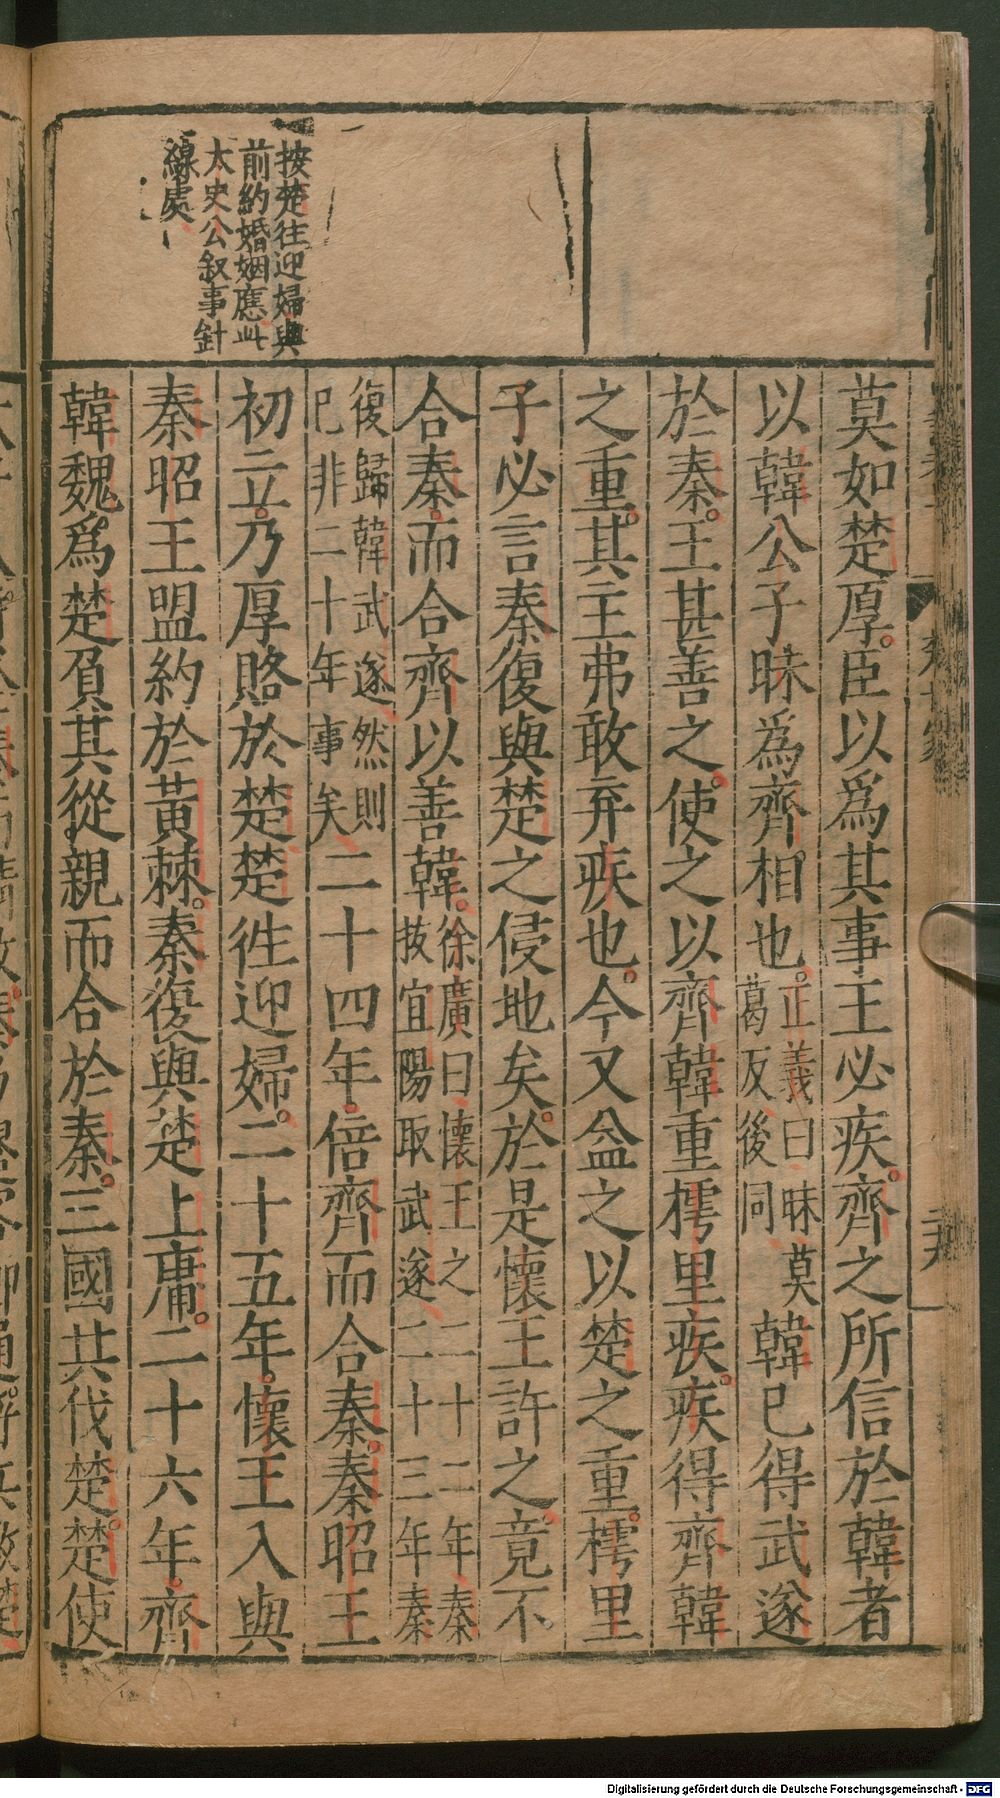 按楚往迎婦與
前約婚姻應此
太史公叙事針
線處
莫如楚厚臣以爲其事王必疾齊之所信於韓者
以韓公子昧爲齊相也正義曰昧莫
葛反後同韓已得武遂
於秦王甚善之使之以齊韓重樗里疾疾得齊韓
之重其主弗敢弃疾也今又益之以楚之重樗里
子必言秦復與楚之侵地矣於是懷王許之竟不
合秦而合齊以善韓徐廣曰懷王之二十二年秦
拔宜陽取武遂二十三年秦
復歸韓武遂然則
已非二十年事矣二十四年倍齊而合秦秦昭王
初立乃厚賂於楚楚往迎婦二十五年懷王入與
秦昭王盟約於黃棘秦復與楚上庸二十六年齊
韓魏爲楚負其從親而合於秦三國共伐楚楚使
Digitalisierung gefördert durch die Deutsche Forschungsgemeinschaft - DFG